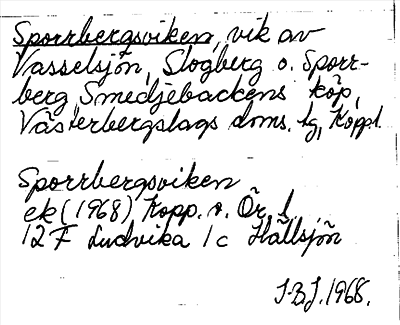 Sporrbergsviken, vik av
Vasselsjön, Slogberg o. Sporr-
berg, Smedjebackens köp,
Västerbergslags doms. tg, Koppl.
Sporrbergsviken
ek (1968), Kopp. o. Ör. l.
12 F Ludvika 1 c Hällsjön
J.B.J. 1968.